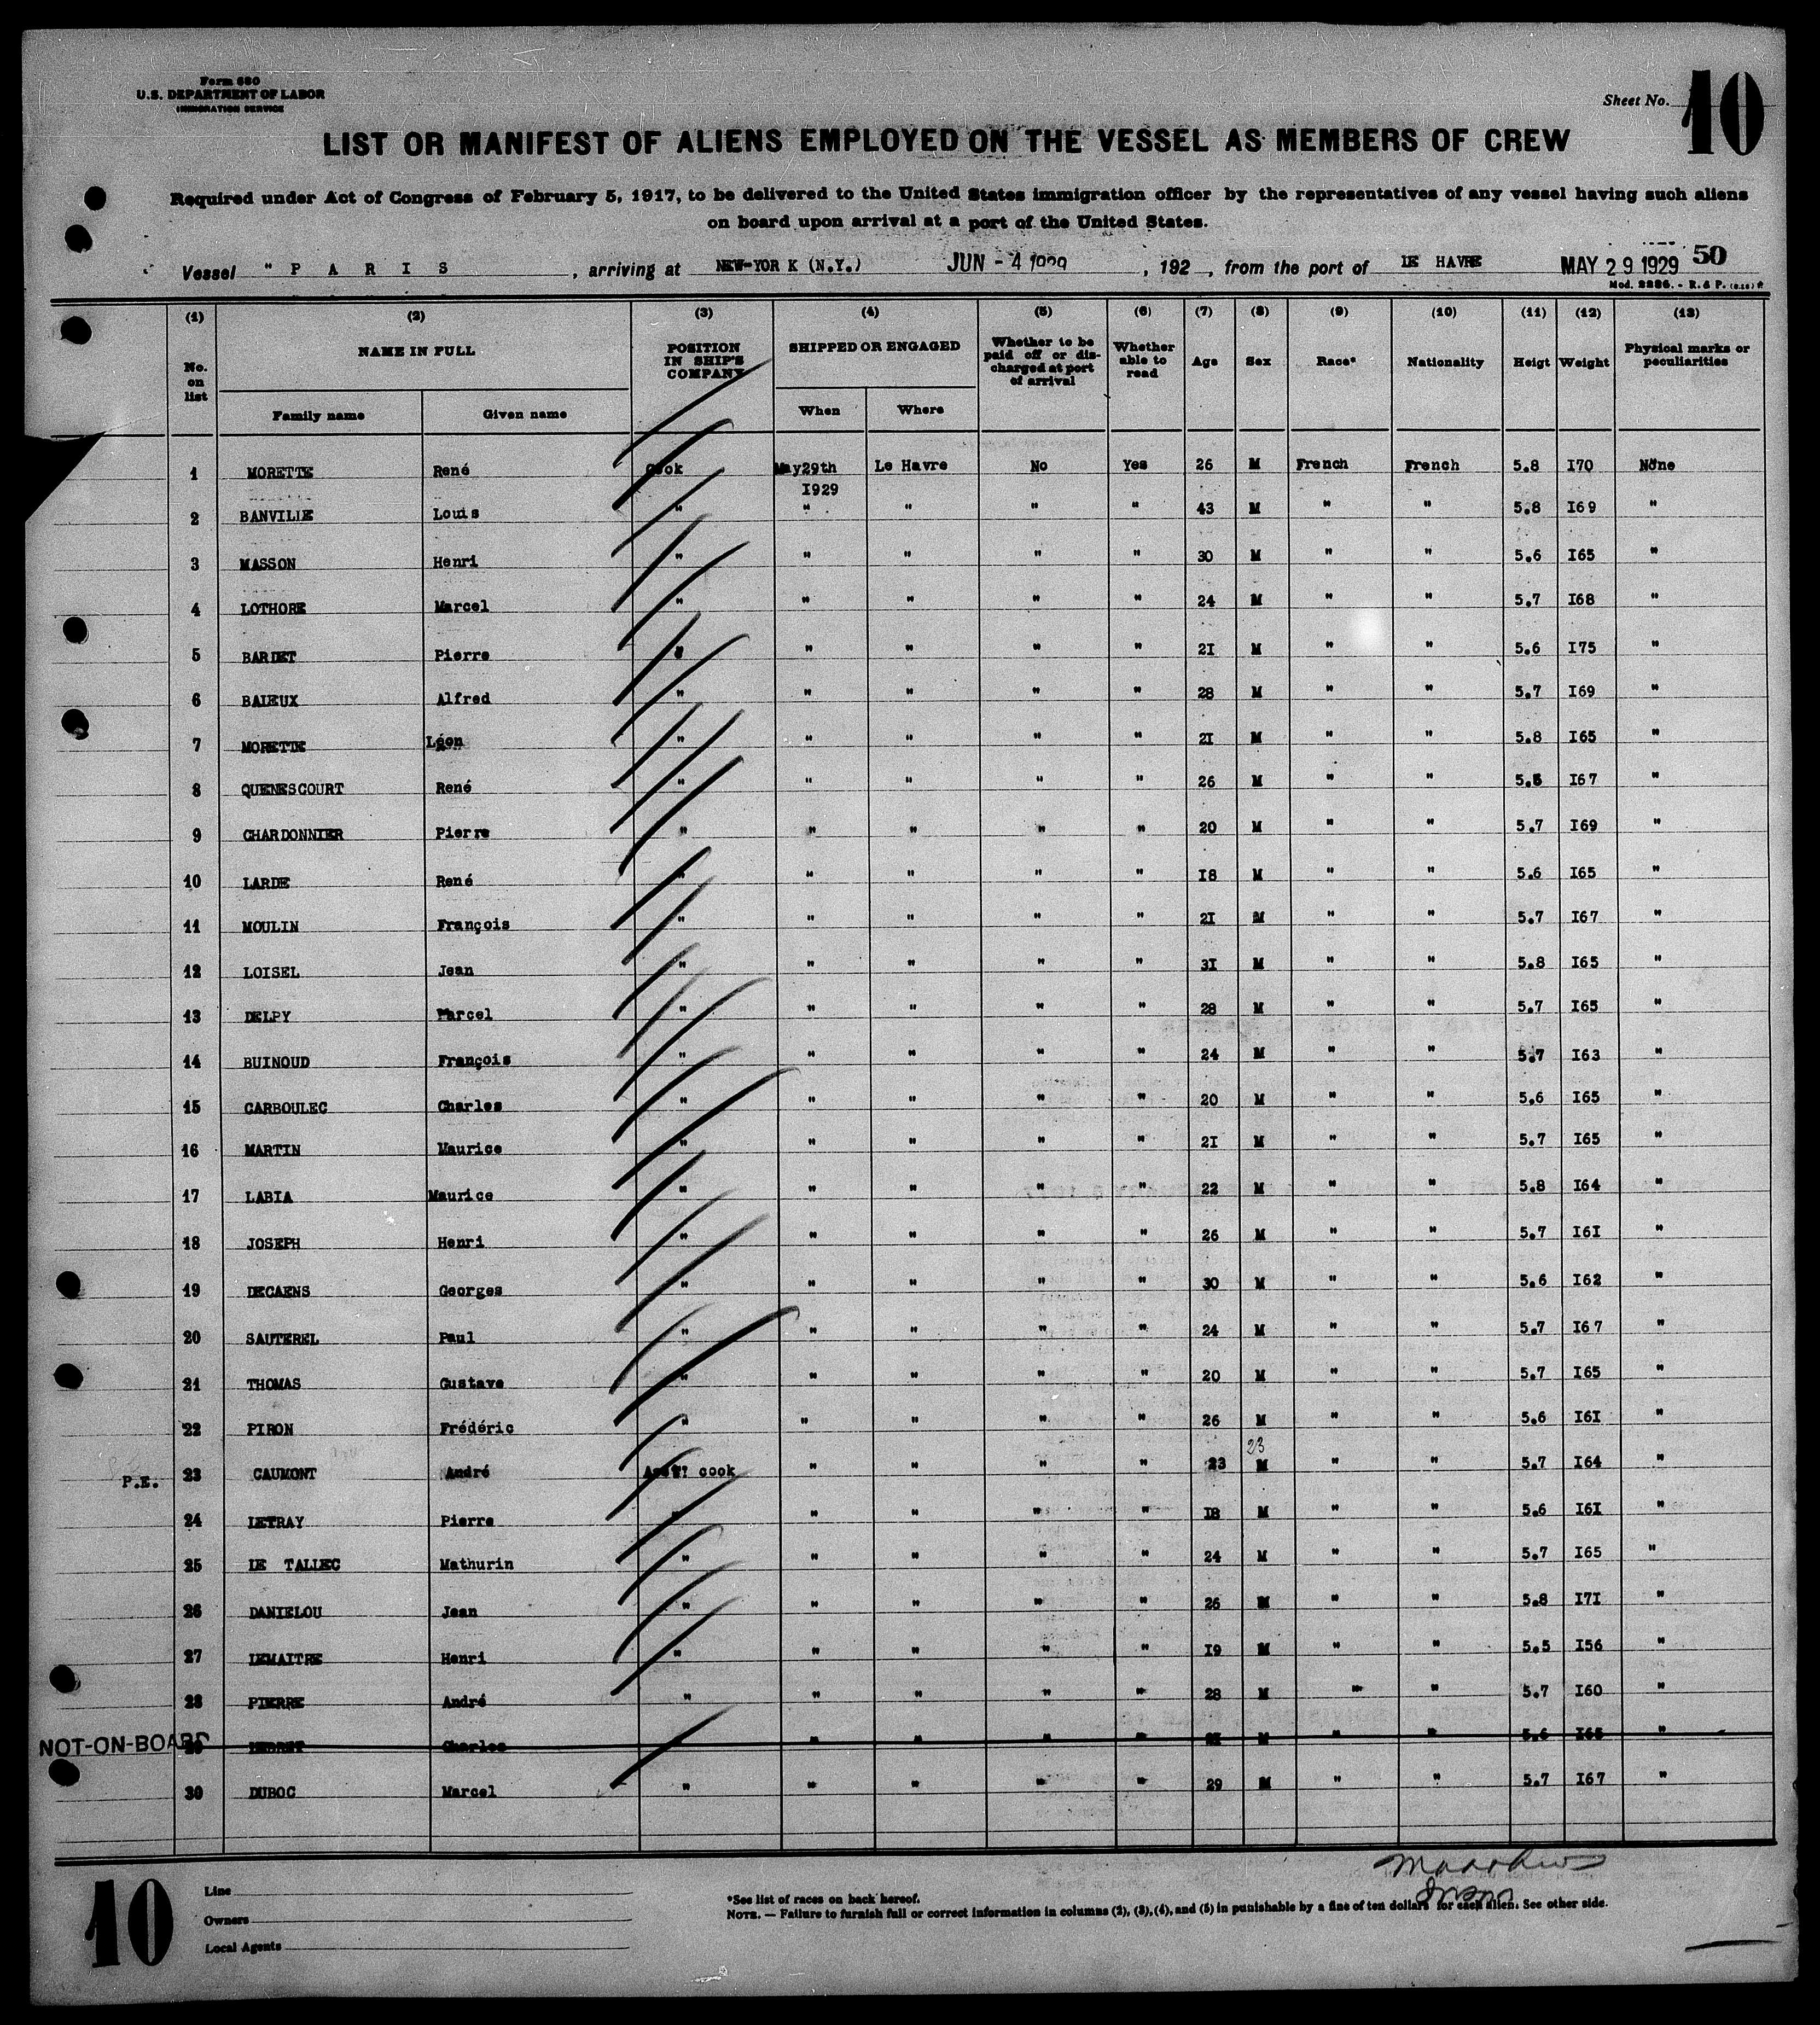 Form 680
U.S. DEPARTMENT OF LABOR
IMMIGRATION SERVICE
Sheet No. 10
LIST OR MANIFEST OF ALIENS EMPLOYED ON THE VESSEL AS MEMBERS OF CREW
Required under Act of Congress of February 5, 1917, to be delivered to the United States immigration officer by the representatives of any vessel having such aliens
on board upon arrival at a port of the United States.
Vessel " P A R I S , arriving at NEW-YOR K (N.Y.) JUN - 4 1929 , 192 , from the port of LE HAVRE MAY 29 1929 50
Mod. 2286. - R. & P.
(1) (2) (3) (4) (5) (6) (7) (8) (9) (10) (11) (12) (13)
No. on list NAME IN FULL POSITION IN SHIP'S COMPANY SHIPPED OR ENGAGED Whether to be paid off or discharged at port of arrival Whether able to read Age Sex Race* Nationality Heigt Weight Physical marks or peculiarities
Family name Given name When Where
1 MORETTE René Cook May29th 1929 Le Havre No Yes 26 M French French 5.8 I70 None
2 BANVILLE Louis " " " " " 43 M " " 5.8 I69 "
3 MASSON Henri " " " " " 30 M " " 5.6 I65 "
4 LOTHORE Marcel " " " " " 24 M " " 5.7 I68 "
5 BARDET Pierre " " " " " 2I M " " 5.6 I75 "
6 BAIEUX Alfred " " " " " 28 M " " 5.7 I69 "
7 MORETTE Léon " " " " " 2I M " " 5.8 I65 "
8 QUENESCOURT René " " " " " 26 M " " 5.5 I67 "
9 CHARDONNIER Pierre " " " " " 20 M " " 5.7 I69 "
10 LARDE René " " " " " I8 M " " 5.6 I65 "
11 MOULIN François " " " " " 2I M " " 5.7 I67 "
12 LOISEL Jean " " " " " 3I M " " 5.8 I65 "
13 DELPY Marcel " " " " " 28 M " " 5.7 I65 "
14 BUINOUD François " " " " " 24 M " " 5.7 I63 "
15 CARBOULEC Charles " " " " " 20 M " " 5.6 I65 "
16 MARTIN Maurice " " " " " 2I M " " 5.7 I65 "
17 LABIA Maurice " " " " " 22 M " " 5.8 I64 "
18 JOSEPH Henri " " " " " 26 M " " 5.7 I6I "
19 DECAENS Georges " " " " " 30 M " " 5.6 I62 "
20 SAUTEREL Paul " " " " " 24 M " " 5.7 I67 "
21 THOMAS Gustave " " " " " 20 M " " 5.7 I65 "
22 PIRON Frédéric " " " " " 26 M " " 5.6 I6I "
23
P.E. 23 CAUMONT André Asst! cook " " " " 23 M " " 5.7 I64 "
24 LETRAY Pierre " " " " " I8 M " " 5.6 I6I "
25 LE TALLEC Mathurin " " " " " 24 M " " 5.7 I65 "
26 DANIELOU Jean " " " " " 26 M " " 5.8 I7I "
27 LEMAITRE Henri " " " " " I9 M " " 5.5 I56 "
28 PIERRE André " " " " " 28 M " " 5.7 I60 "
NOT-ON-BOARD 29 Charles " " " " M " " 5.6 I65 "
30 DUBOC Marcel " " " " " 29 M " " 5.7 I67 "
10
Line
Owners
Local Agents
*See list of races on back hereof.
NOTE. — Failure to furnish full or correct information in columns (2), (3), (4), and (5) in punishable by a fine of ten dollars for each alien. See other side.